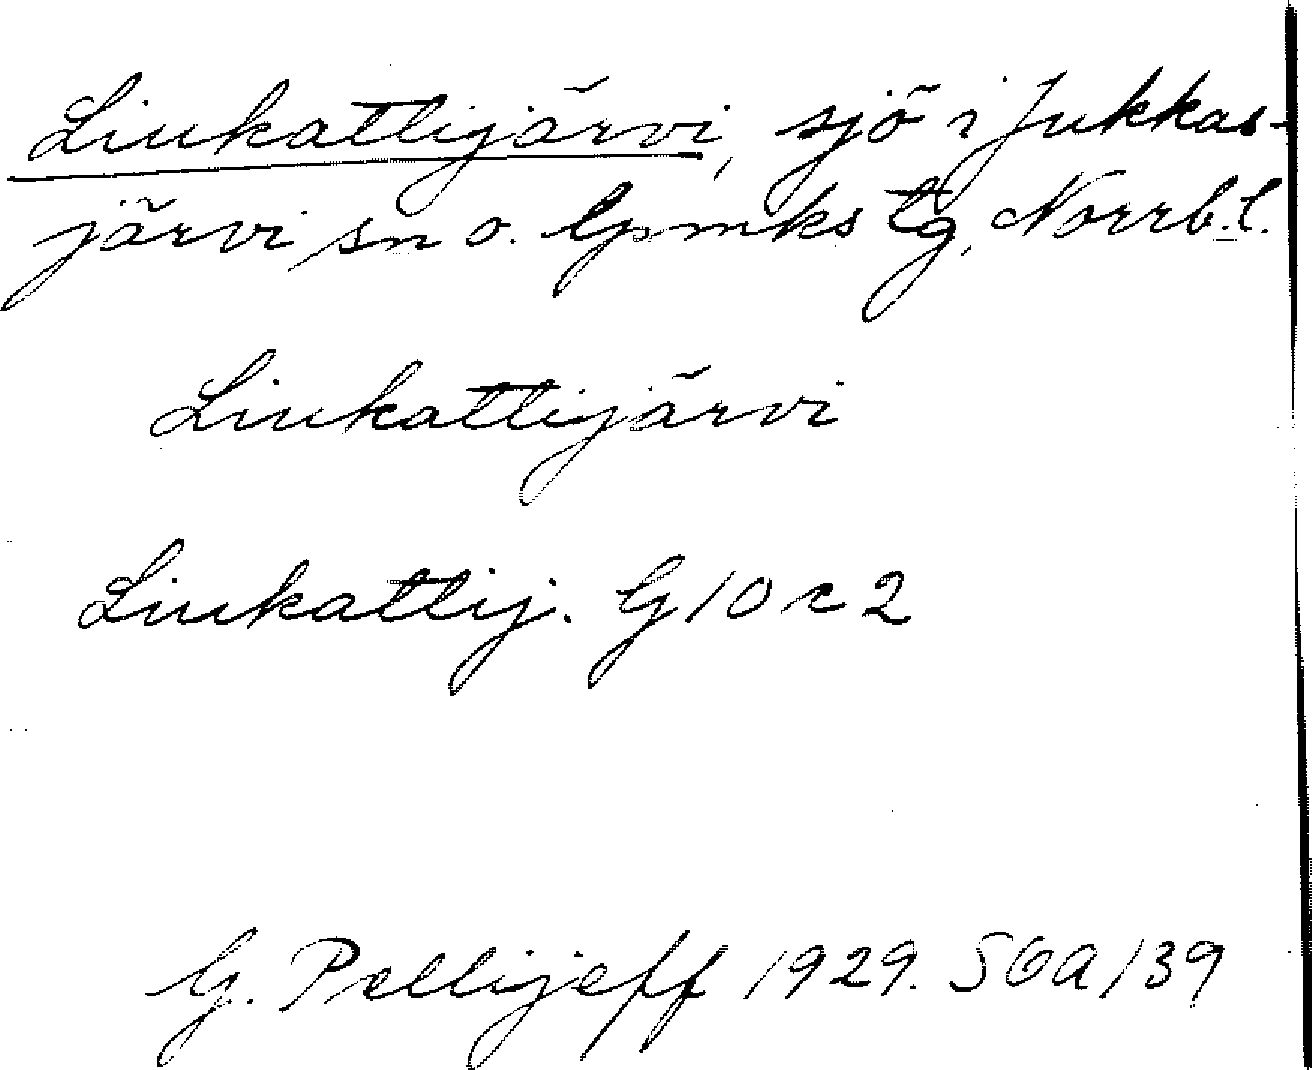 Liukattijärvi, sjö i Jukkas-
järvi sn o. lpmks tg, Norrb. l.
Liukattijärvi
Liukattij. G 10 c 2
G. Pellijeff 1929. SOA 139